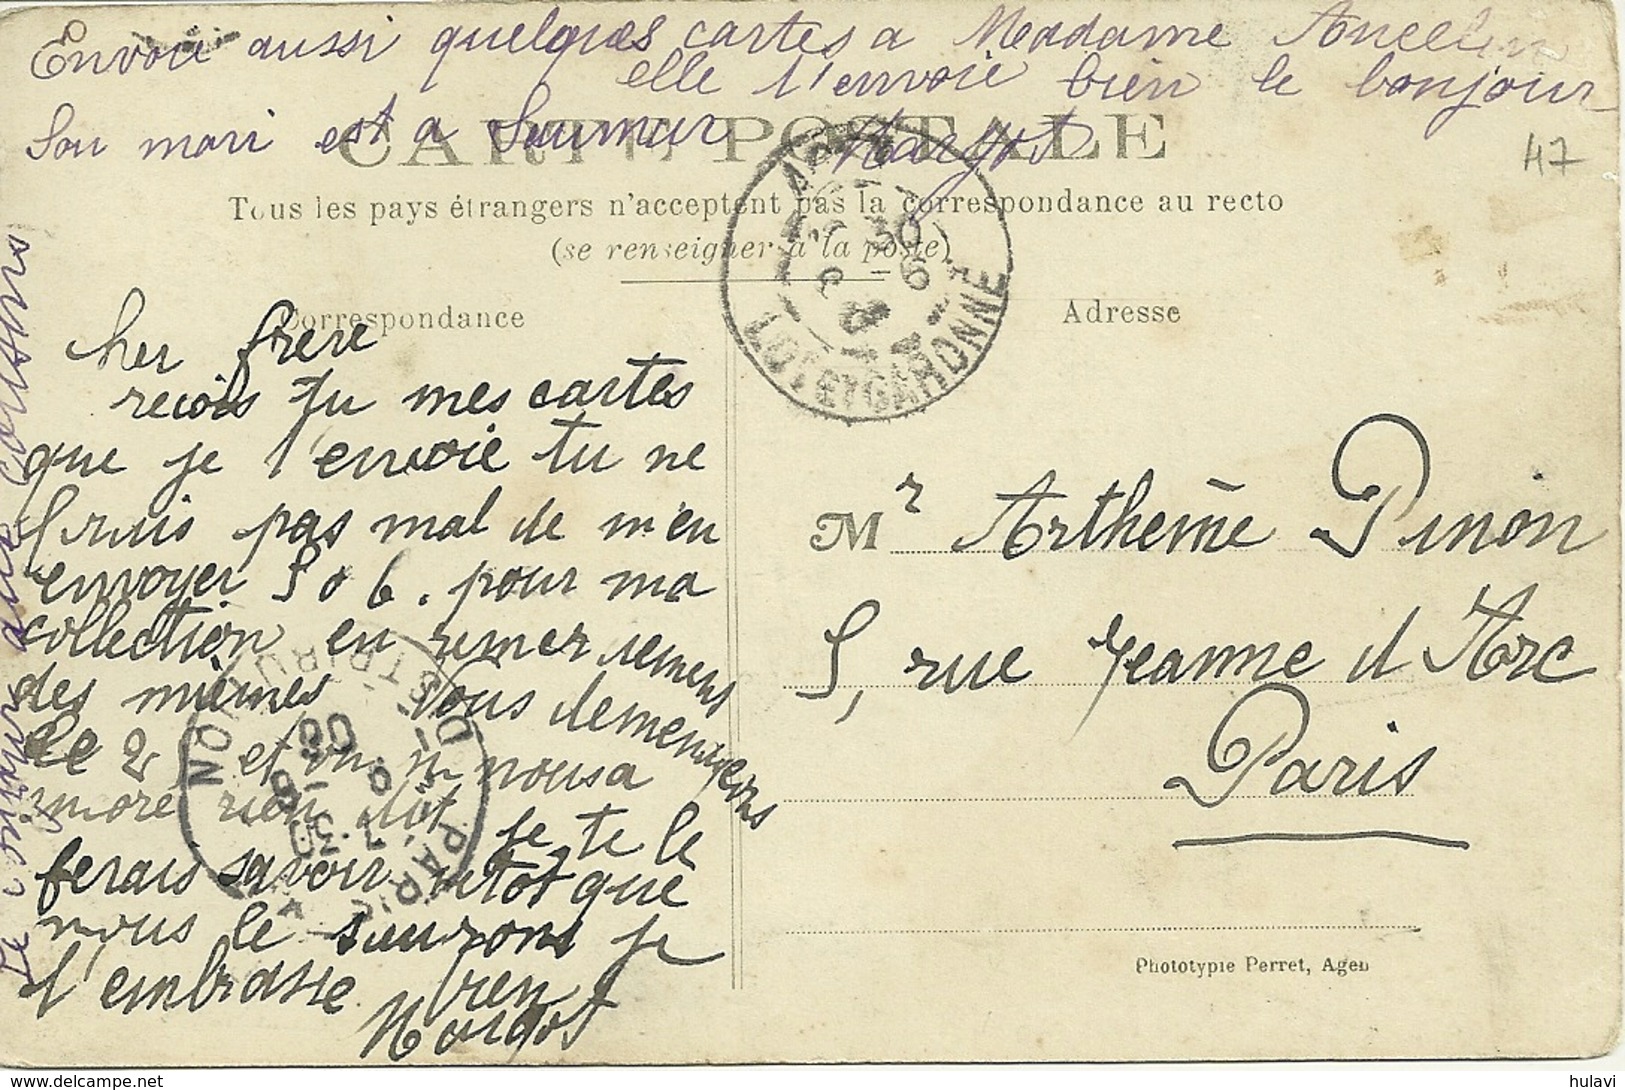 Envoie aussi quelques cartes a Madame Ancelin
elle t'envoie bien le bonjour
Son mari est a Saumur Margot
47
CARTE POSTALE
Tous les pays étrangers n'acceptent pas la correspondance au recto
(se renseigner à la poste)
Correspondance
Adresse
LOT ET GARONNE
cher frère
reçois tu mes cartes
que je t'envoie tu ne
ferais pas mal de m'en
envoyer 5 o 6. pour ma
collection en remerciemens
des miemes Vous demenagerons
le 2 et on n nousa
more rien dit je te le
ferais savoir sitot que
nous le saurons je
t'embrasse bien
Margot
cousins
PARIS
DISTRIBUTION
7 30
Mr Arthème Pinon
5, rue Jeanne d'Arc
Paris
Phototypie Perret, Agen
delcampe.net
hulavi